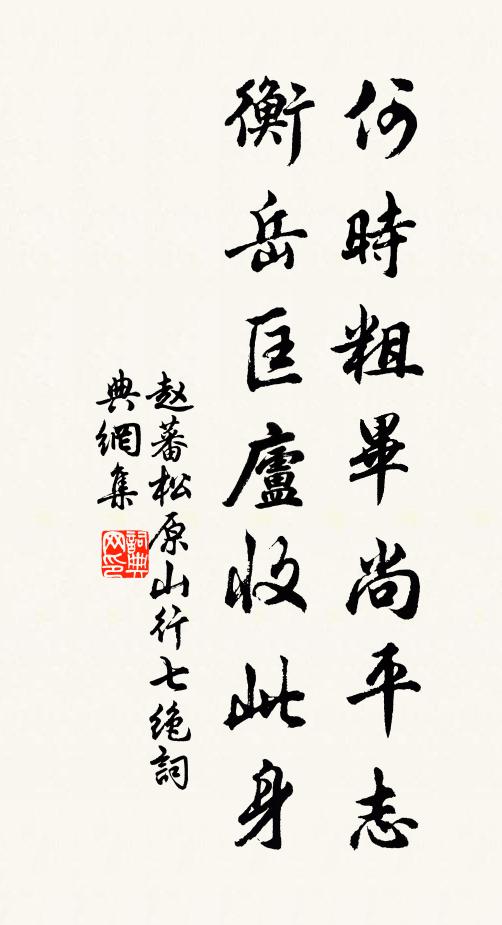 何時粗畢尚平志
衡岳匡廬收此身
赵蕃松原山行七绝詞
典網集
詞典
网印